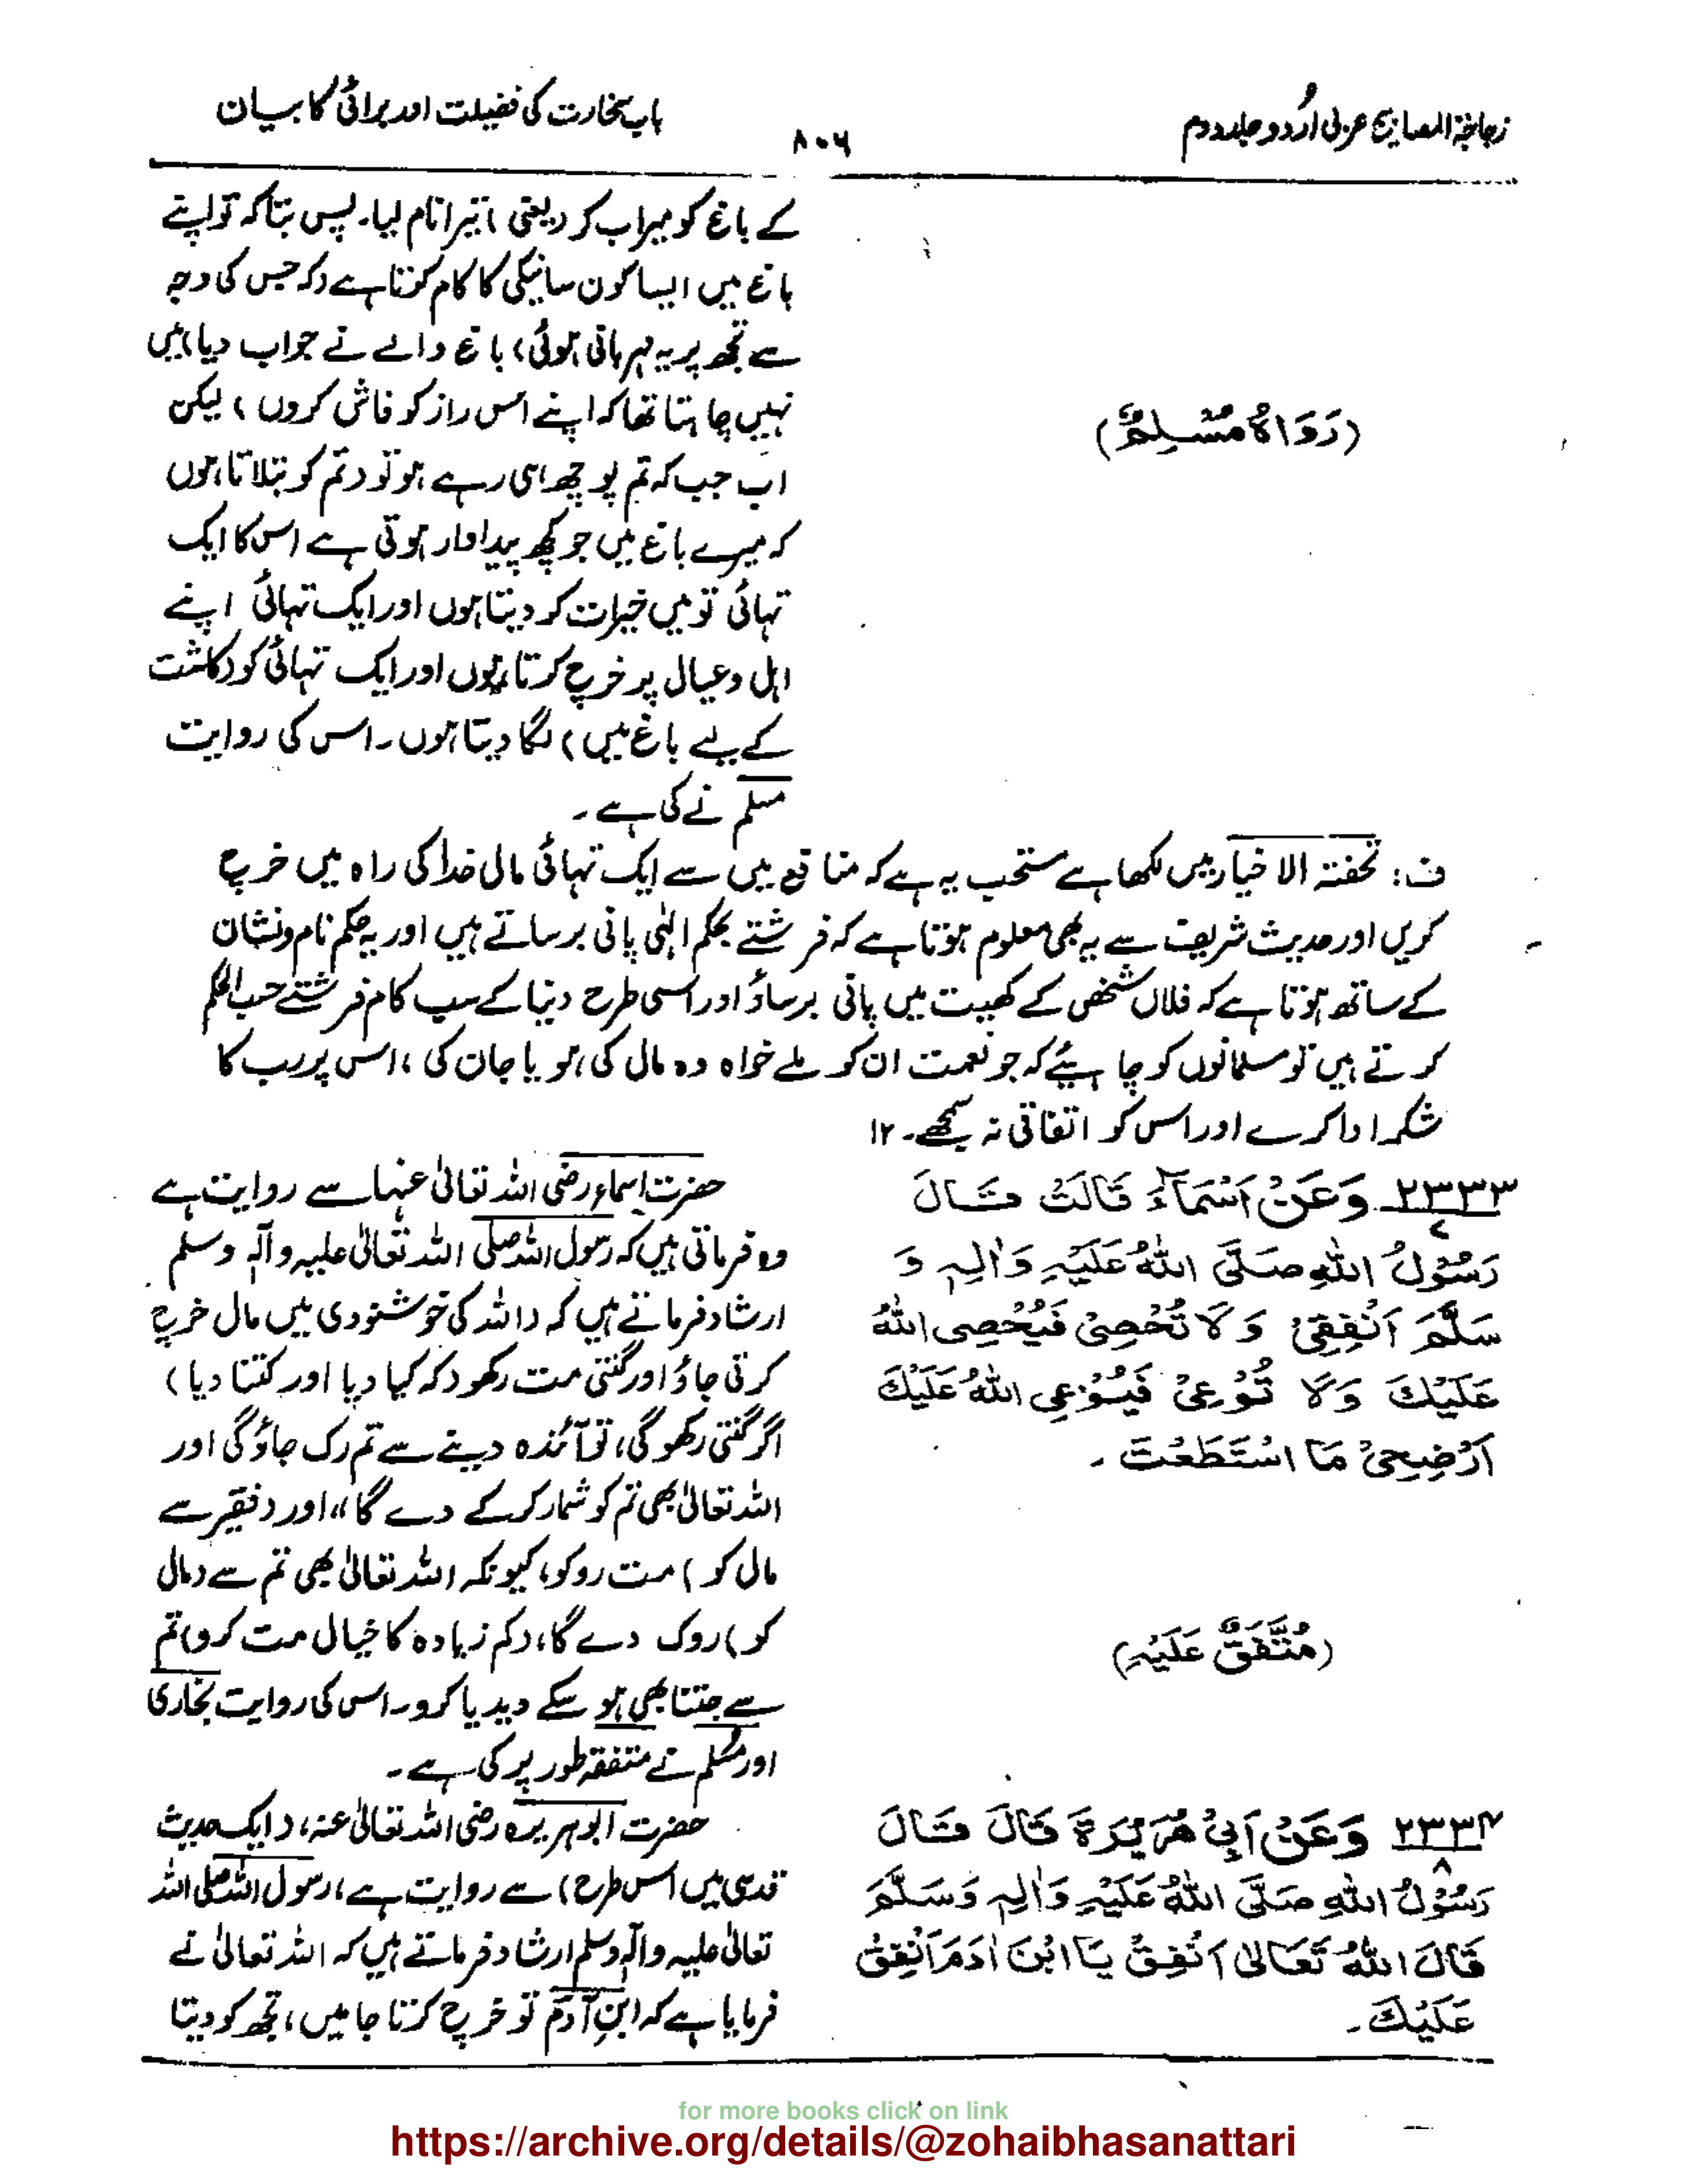 زجاجۃ المصابیح عربی اُردو جلد دوم
۸۰۶
باب سخاوت کی فضیلت اور برائی کا بیان
کے باغ کو سیراب کر (یعنی) تیرا نام لیا۔ پس بتا کہ تو اپنے
باغ میں ایسا کون سا نیکی کا کام کرتا ہے (کہ جس کی وجہ
سے تجھ پر یہ مہربانی ہوئی) باغ والے نے جواب دیا (میں
نہیں چاہتا تھا کہ اپنے اس راز کو فاش کروں) لیکن
اب جب کہ تم پوچھ ہی رہے ہو تو (تم کو بتلاتا ہوں
کہ میرے باغ میں جو کچھ پیداوار ہوتی ہے اس کا ایک
تہائی تو میں خیرات کر دیتا ہوں اور ایک تہائی اپنے
اہل و عیال پر خرچ کرتا ہوں اور ایک تہائی کو (کاشت
کے لیے باغ میں) لگا دیتا ہوں۔ اس کی روایت
مسلم نے کی ہے۔
(رَوَاهُ مُسْلِمٌ)
ف: تحفۃ الاخیار میں لکھا ہے مستحب یہ ہے کہ منافع میں سے ایک تہائی مال خدا کی راہ میں خرچ
کریں اور حدیث شریف سے یہ بھی معلوم ہوتا ہے کہ فرشتے بحکم الہٰی پانی برساتے ہیں اور یہ حکم نام و نشان
کے ساتھ ہوتا ہے کہ فلاں شخص کے کھیت میں پانی برساؤ اور اسی طرح دنیا کے سب کام فرشتے حسب الحکم
کرتے ہیں تو مسلمانوں کو چاہیئے کہ جو نعمت ان کو ملے خواہ وہ مال کی ہو یا جان کی، اس پر رب کا
شکر ادا کرے اور اس کو اتفاقی نہ سمجھے۔ ۱۲
۲۳۳۳ وَعَنْ اَسْمَآءَ قَالَتْ قَالَ
۷
رَسُوْلُ اللّٰهِ صَلَّى اللّٰهُ عَلَيْهِ وَاٰلِهٖ وَ
سَلَّمَ اَنْفِقِىْ وَلَا تُحْصِىْ فَيُحْصِى اللّٰهُ
عَلَيْكَ وَلَا تُوْعِىْ فَيُوْعِى اللّٰهُ عَلَيْكَ
اَرْضِحِىْ مَا اسْتَطَعْتَ۔
(مُتَّفَقٌ عَلَيْهِ)
حضرت اسماء رضی اللہ تعالیٰ عنہا سے روایت ہے
وہ فرماتی ہیں کہ رسول اللہ صلی اللہ تعالیٰ علیہ وآلہ وسلم
ارشاد فرماتے ہیں کہ (اللہ کی خوشنودی میں مال خرچ
کرتی جاؤ اور گنتی مت رکھو (کہ کیا دیا اور کتنا دیا)
اگر گنتی رکھو گی، تو آئندہ دینے سے تم رک جاؤ گی اور
اللہ تعالیٰ بھی تم کو شمار کر کے دے گا،، اور (فقیر سے
مال کو) مت روکو، کیونکہ اللہ تعالیٰ بھی تم سے (مال
کو) روک دے گا، (کم زیادہ کا خیال مت کرو) تم
سے جتنا بھی ہو سکے دیدیا کرو۔ اس کی روایت بخاری
اور مسلم نے متفقہ طور پر کی ہے۔
۲۳۳۴ وَعَنْ اَبِىْ هُرَيْرَةَ قَالَ قَالَ
۸
رَسُوْلُ اللّٰهِ صَلَّى اللّٰهُ عَلَيْهِ وَاٰلِهٖ وَسَلَّمَ
قَالَ اللّٰهُ تَعَالٰى اَنْفِقْ يَا ابْنَ اٰدَمَ اُنْفِقْ
عَلَيْكَ۔
حضرت ابوہریرہ رضی اللہ تعالیٰ عنہ، (ایک حدیث
قدسی میں اس طرح) سے روایت ہے، رسول اللہ صلی اللہ
تعالیٰ علیہ وآلہٖ وسلم ارشاد فرماتے ہیں کہ اللہ تعالیٰ نے
فرمایا ہے کہ ابن آدم تو خرچ کرتا جا میں، تجھ کو دیتا
for more books click on link
https://archive.org/details/@zohaibhasanattari